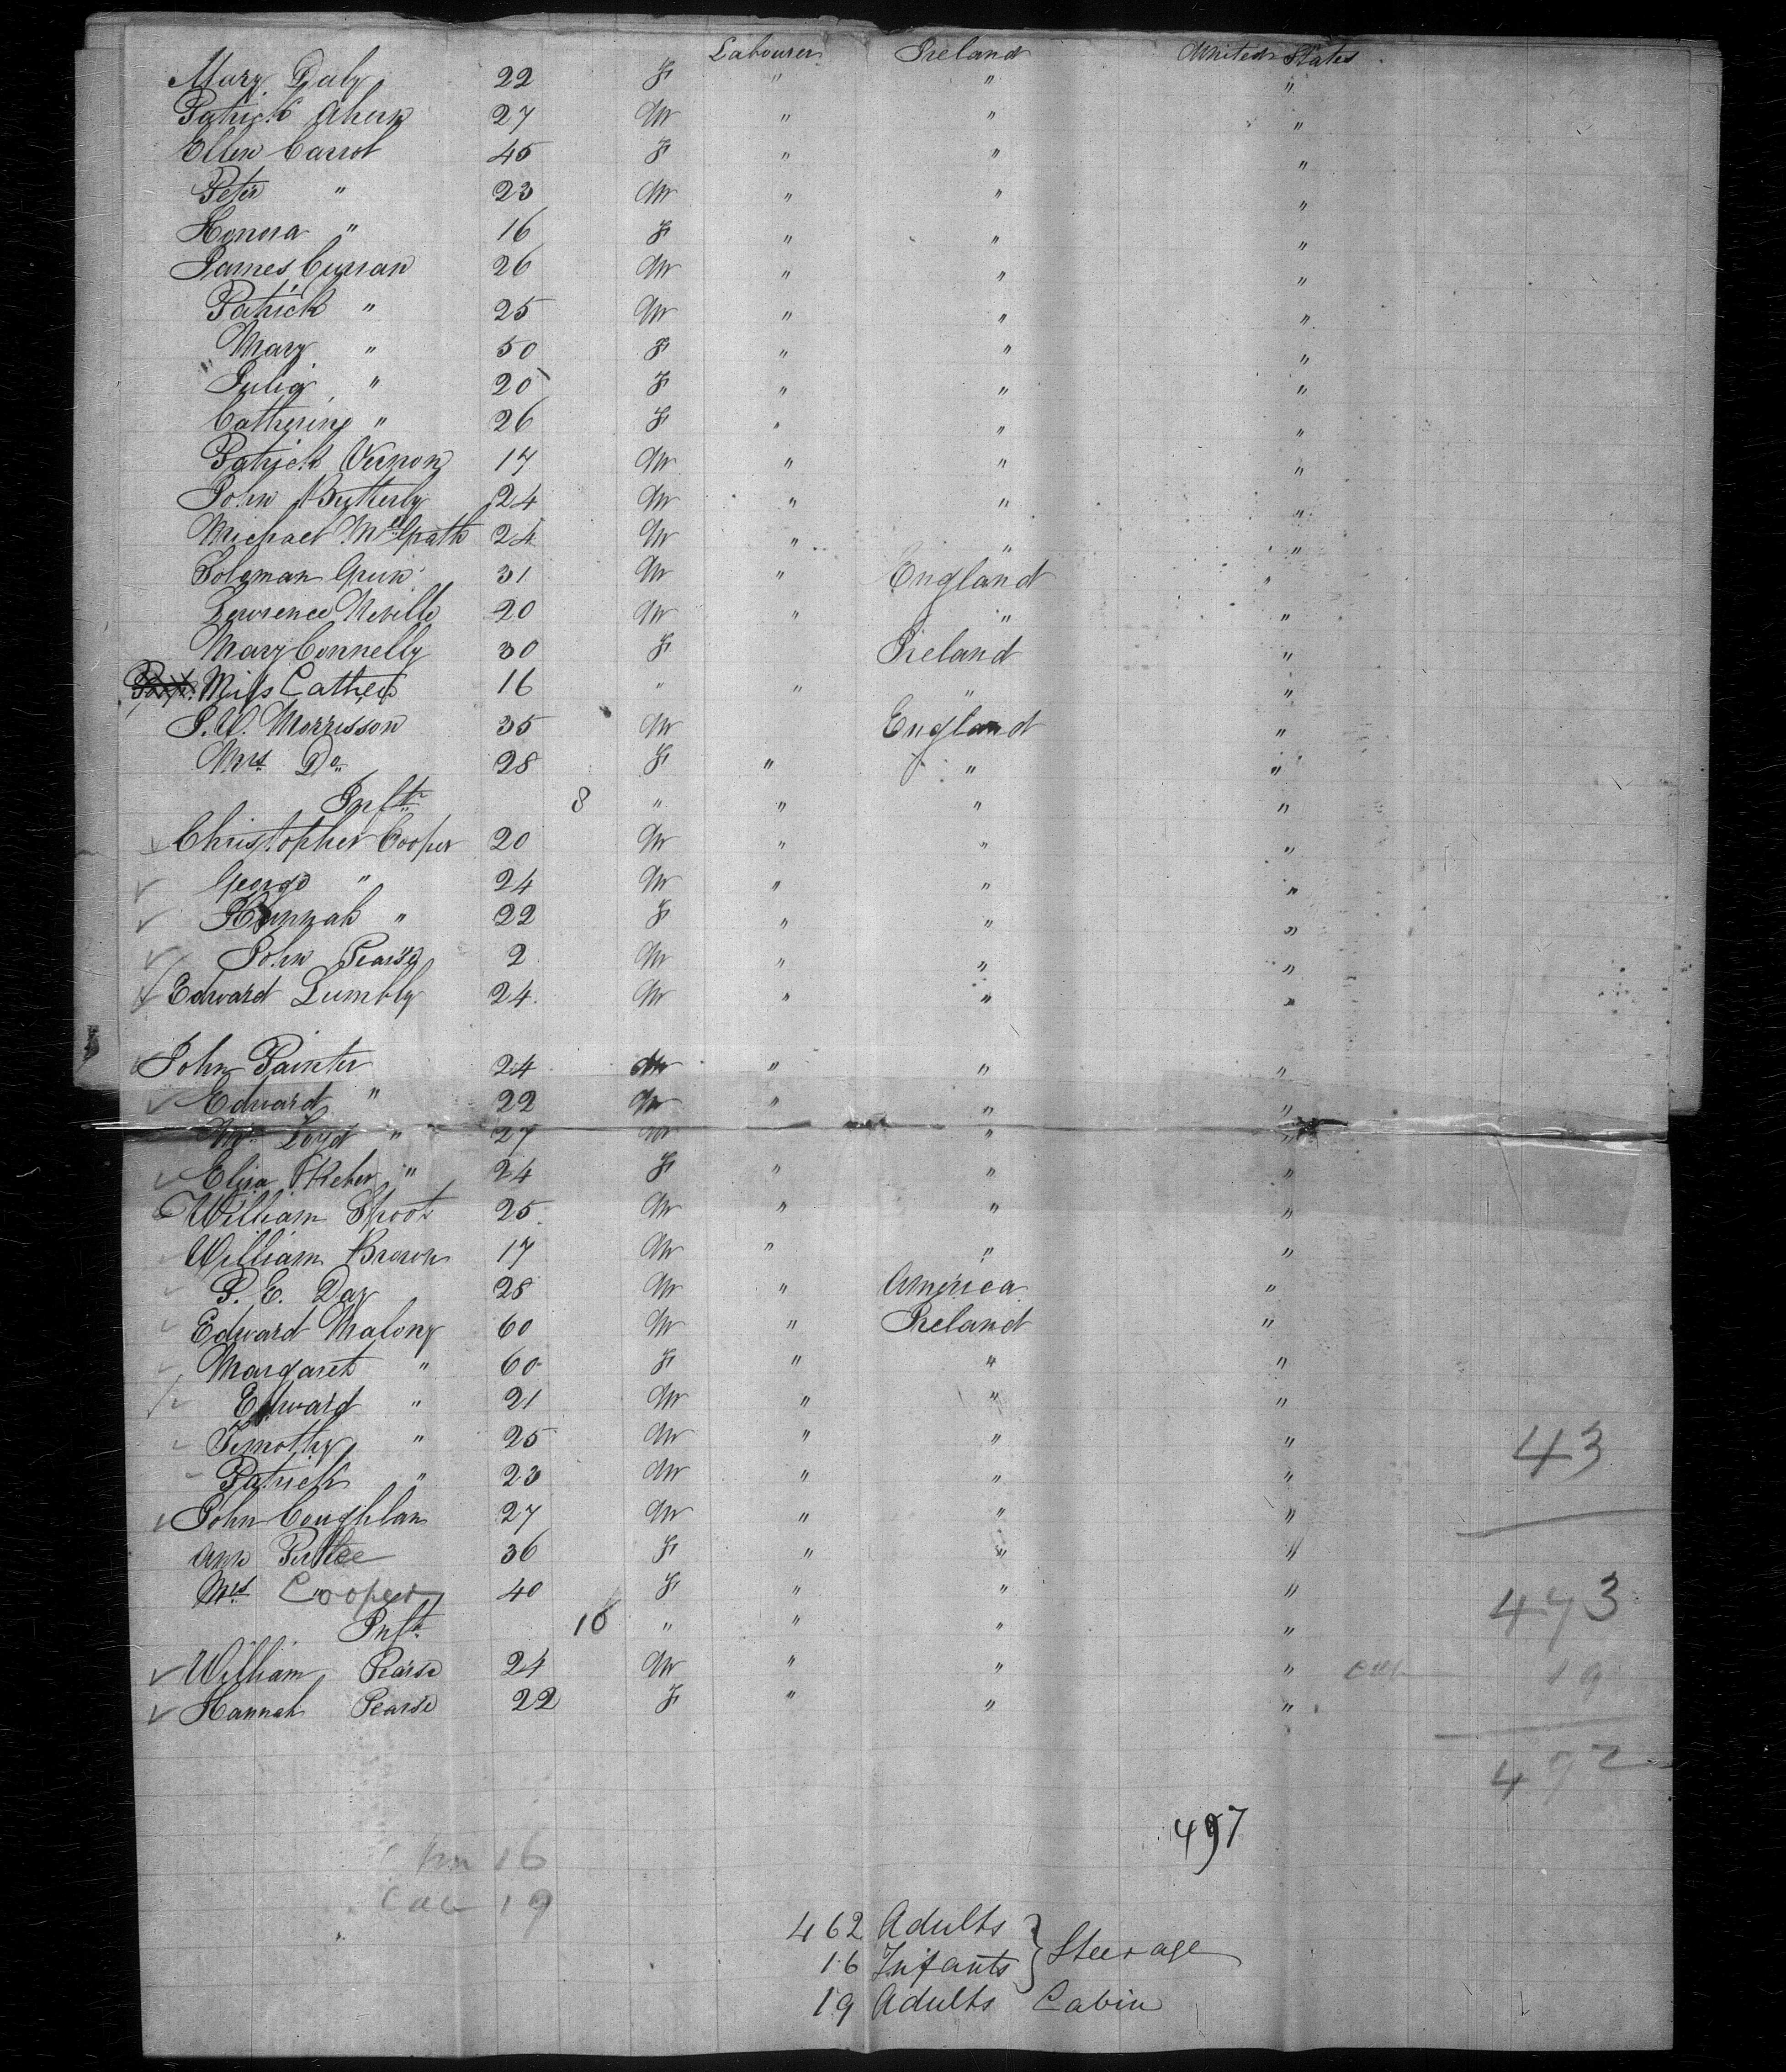 Labourer Ireland United States
Mary Daly 22 F " " "
Patrick Ahern 27 M " " "
Ellen Carrol 45 F " " "
Peter " 23 M " " "
Honora " 16 F " " "
James Curran 26 M " " "
Patrick " 25 M " " "
Mary " 50 F " " "
Julia " 20 F " " "
Catherine " 26 F " " "
Patrick Vernon 17 M " " "
John Butterly 24 M " " "
Michael McGrath 24 M " " "
Soloman Green 31 M " England "
Lawrence Neville 20 M " " "
Mary Connelly 30 F Ireland "
Miss 16 " " " "
J. W. Morrisson 35 M England "
Mrs Do 28 F " " "
Inft 8 " " " "
Christopher Cooper 20 M " " "
George " 24 M " " "
Hannah " 22 F " " "
John Pearse 2 M " " "
Edward Lumbly 24 M " " "
John Painter 24 M " " "
Edward " 22 M " " "
" 27 M " "
Eliza " 24 F " " "
William Spoot 25 M " " "
William Brown 17 M " " "
P. E. Day 28 M " America "
Edward Malony 60 M " Ireland "
Margaret " 60 F " " "
Edward " 21 M " " "
Timothy " 25 M " " "
Patrick " 23 M " " "
43
John Coughlan 27 M " " "
Ann 36 F " " "
Mrs Cooper 40 F " " "
473
Inft 10 " " " "
William Pearse 24 M " " " 19
Hannah Pearse 22 F " " "
492
497
16
Cab 19
462 Adults
16 Infants } Steerage
19 Adults Cabin